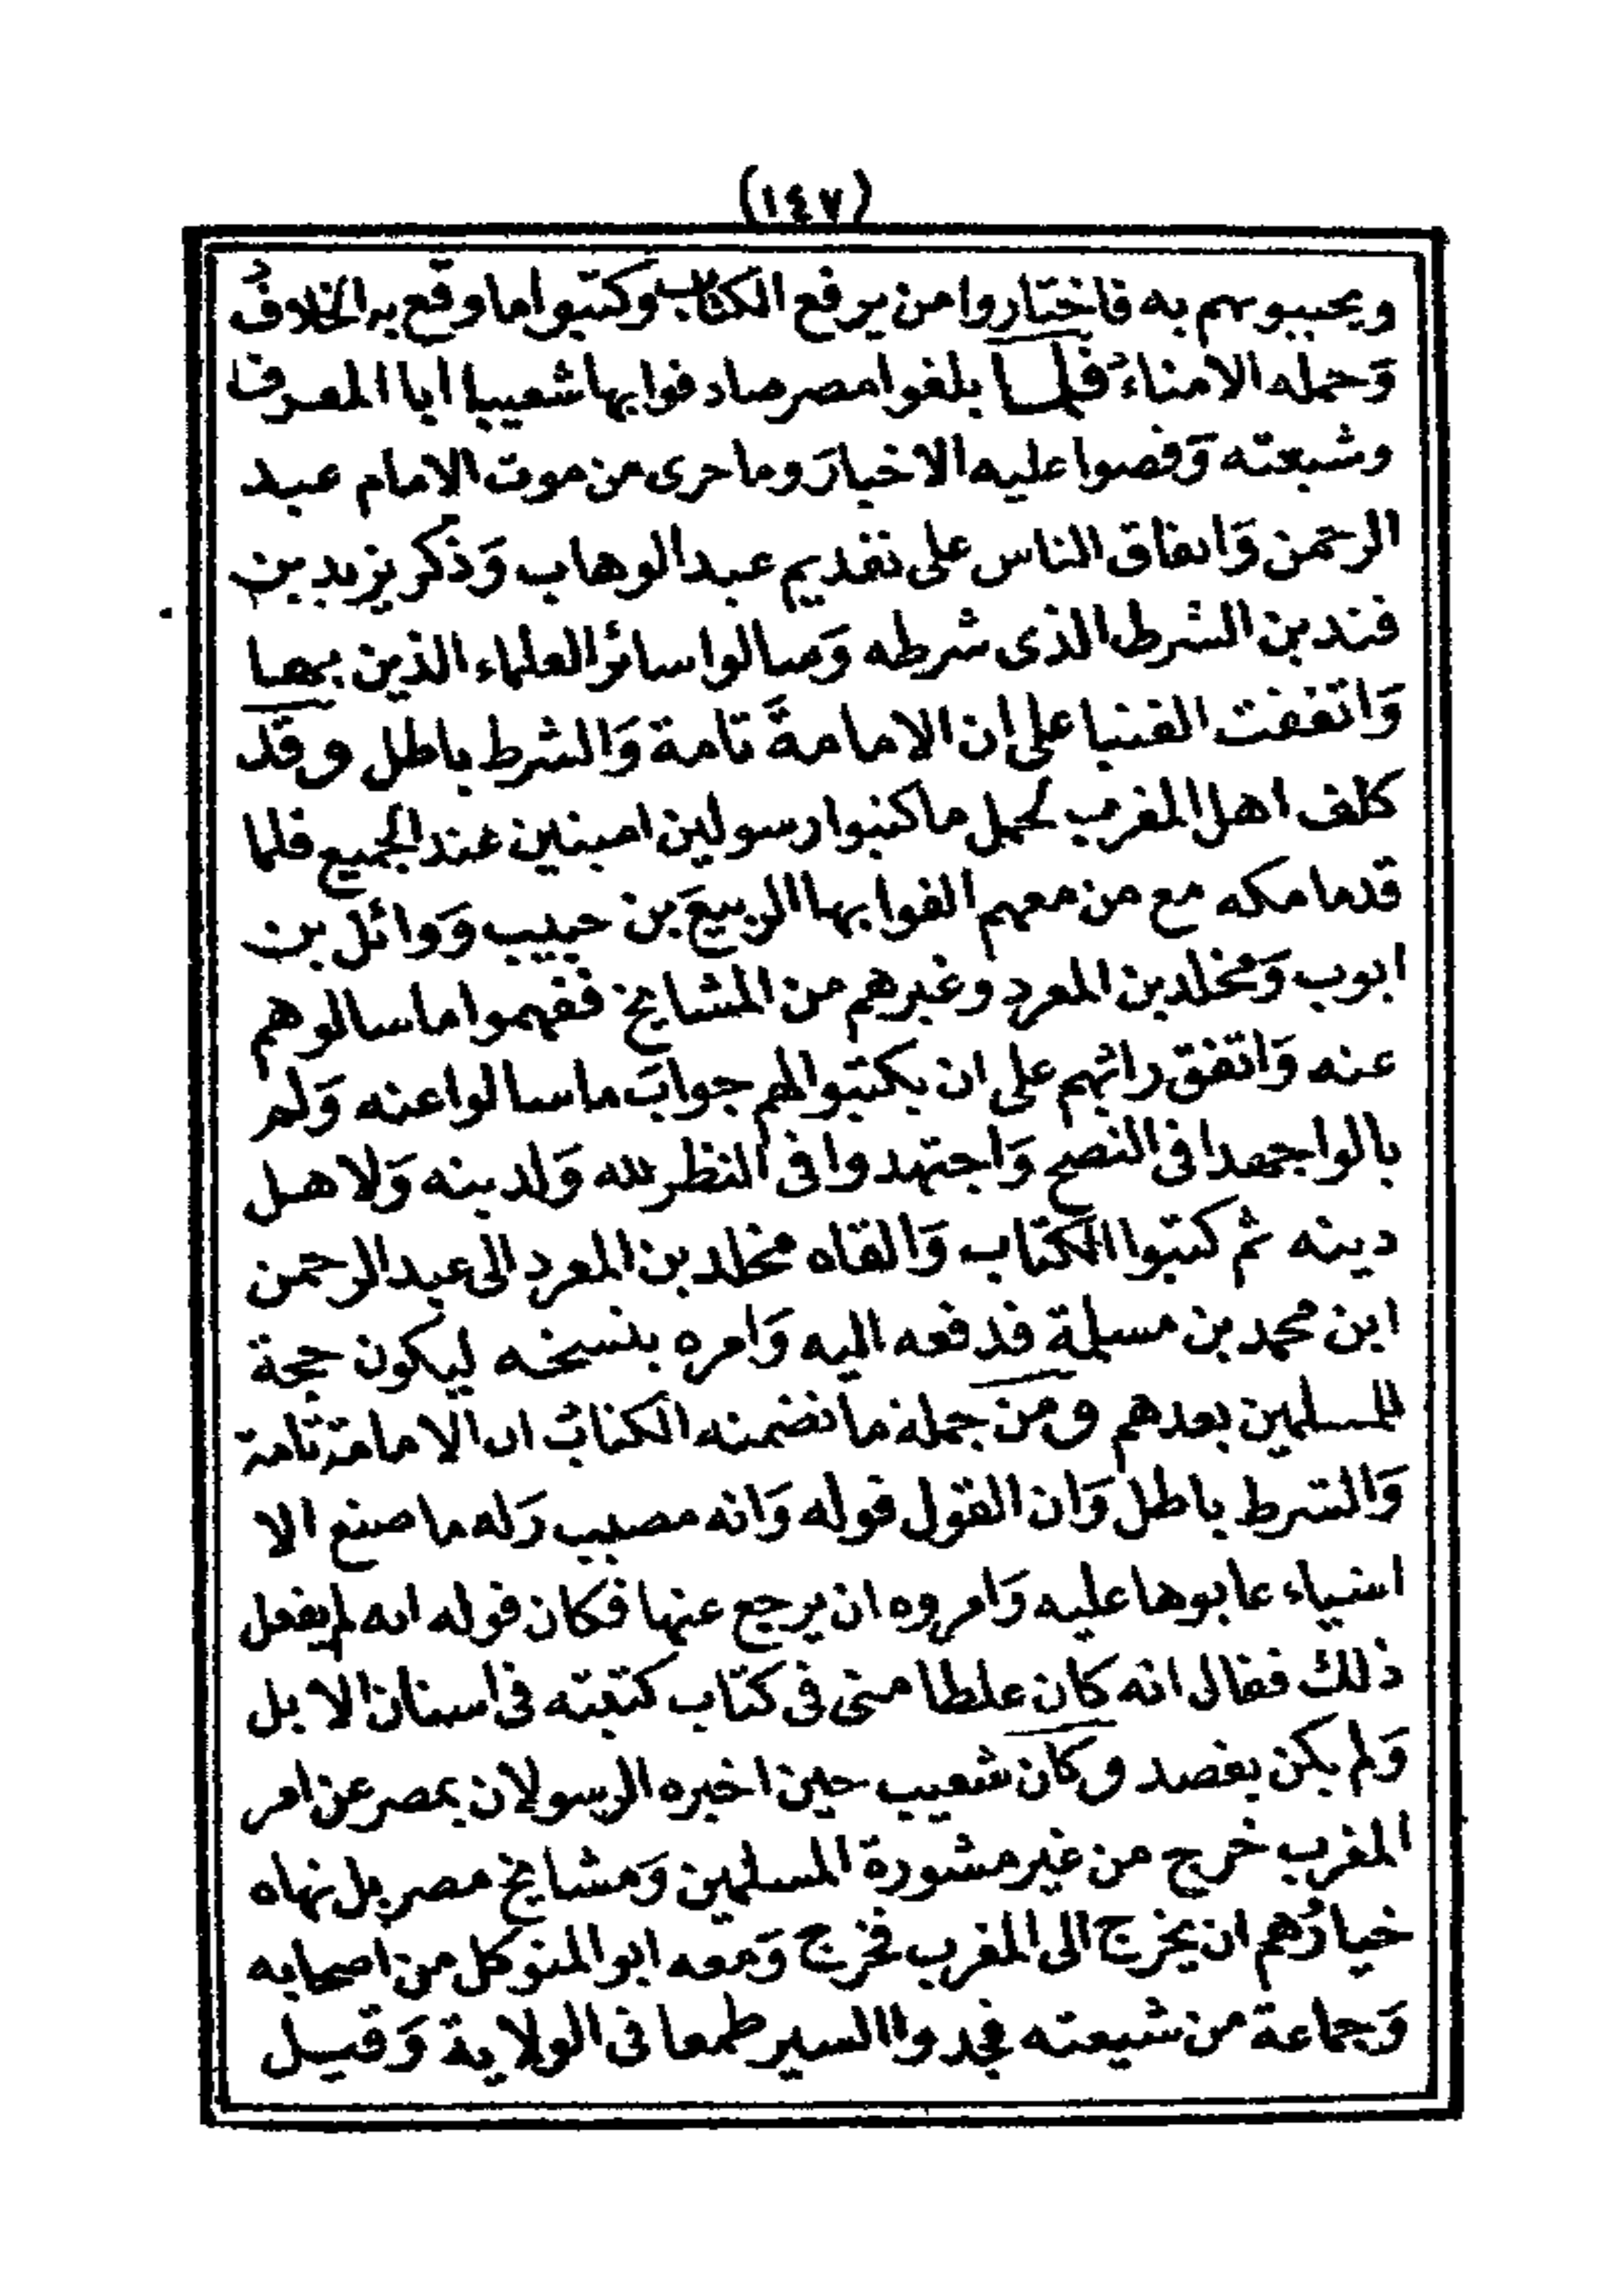 (١٤٧)
ويجيبوهم به فاختاروا من يرفع الكتاب وكتبوا ما وقع به الخلافُ
وَحمله الامناءُ فلما بلغوا مصر صادفوا بها شعيبا ابا المعرف
وشيعته وَقصوا عليه الاخبارَ وما جرى من موت الامام عبد
الرحمن وَاتفاق الناس على تقديم عبد الوهاب وَذكر يزيد بن
فندين الشرط الذى شرطه وَسالوا سائر العلماء الذين بها
وَاتفقت الفتيا على ان الامامةَ تامة وَالشرط باطل وقد
كلف اهل المغرب لحمل ما كتبوا رسولين امينين عند الجميع فلما
قدما مكه مع من معهم الفوا بها الربيعَ بن حبيب وَوائل بن
ايوب وَمخلد بن المعرد وغيرهم من المشايخ ففهموا ما سالوهم
عنه وَاتفق رائهم على ان يكتبوا لهم جوابَ ما سالوا عنه وَلم
يالوا جهدا فى النصح وَاجتهدوا فى النظر لله وَلدينه وَلاهل
دينه ثم كتبوا الكتاب وَالقاه مخلد بن المعرد الى عبد الرحمن
ابن محمد بن مسلمة فدفعه اليه وَامره بنسخه ليكون حجة
للمسلمين بعدهم ومن جملة ما تضمنه الكتابُ ان الامامة تامة
وَالشرط باطل وَان القول قوله وَانه مصيب وَله ما صنع الا
اشياء عابوها عليه وَامروه ان يرجع عنها فكان قوله انه لم يفعل
ذلك فقال انه كان غلطا منى فى كتاب كتبته فى اسنان الابل
وَلم يكن بقصد وكان شعيب حين اخبره الرسولان بمصر عن امر
المغرب خرج من غير مشورة المسلمين وَمشايخ مصر بل نهاه
خيارُهم ان يخرج الى المغرب فخرج وَمعه ابو المتوكل من اصحابه
وَجماعة من شيعته فجدوا السير طمعا فى الولاية وَقيل